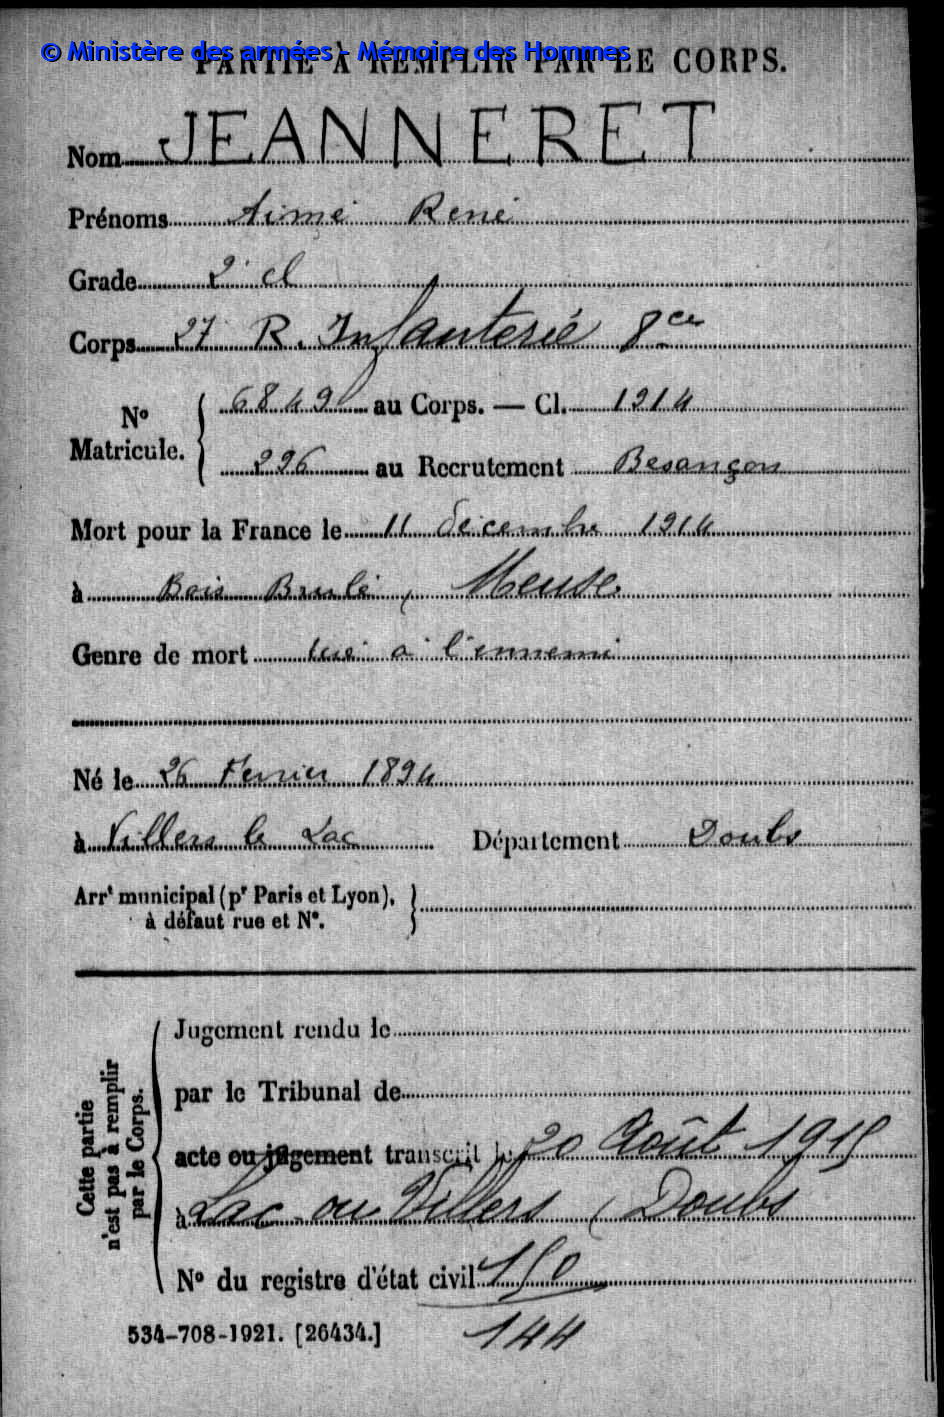 © Ministère des armées - Mémoire des Hommes
PARTIE À REMPLIR PAR LE CORPS.
Nom JEANNERET
Prénoms Aimé René
Grade 2e cl
Corps 27 R. Infanterie 8ce
N° Matricule. { 6849 au Corps. — Cl. 1914
296 au Recrutement Besançon
Mort pour la France le 11 décembre 1914
à Bois Brulé, Meuse
Genre de mort tué à l'ennemi
Né le 26 Fevrier 1894
à Villers le Lac Département Doubs
Arrt municipal (pr Paris et Lyon),
à défaut rue et N°.
Cette partie
n'est pas à remplir
par le Corps.
Jugement rendu le
par le Tribunal de
acte ou jugement transcrit le 20 Août 1915
à Lac ou Villers (Doubs
N° du registre d'état civil 150
534-708-1921. [26434.] 144